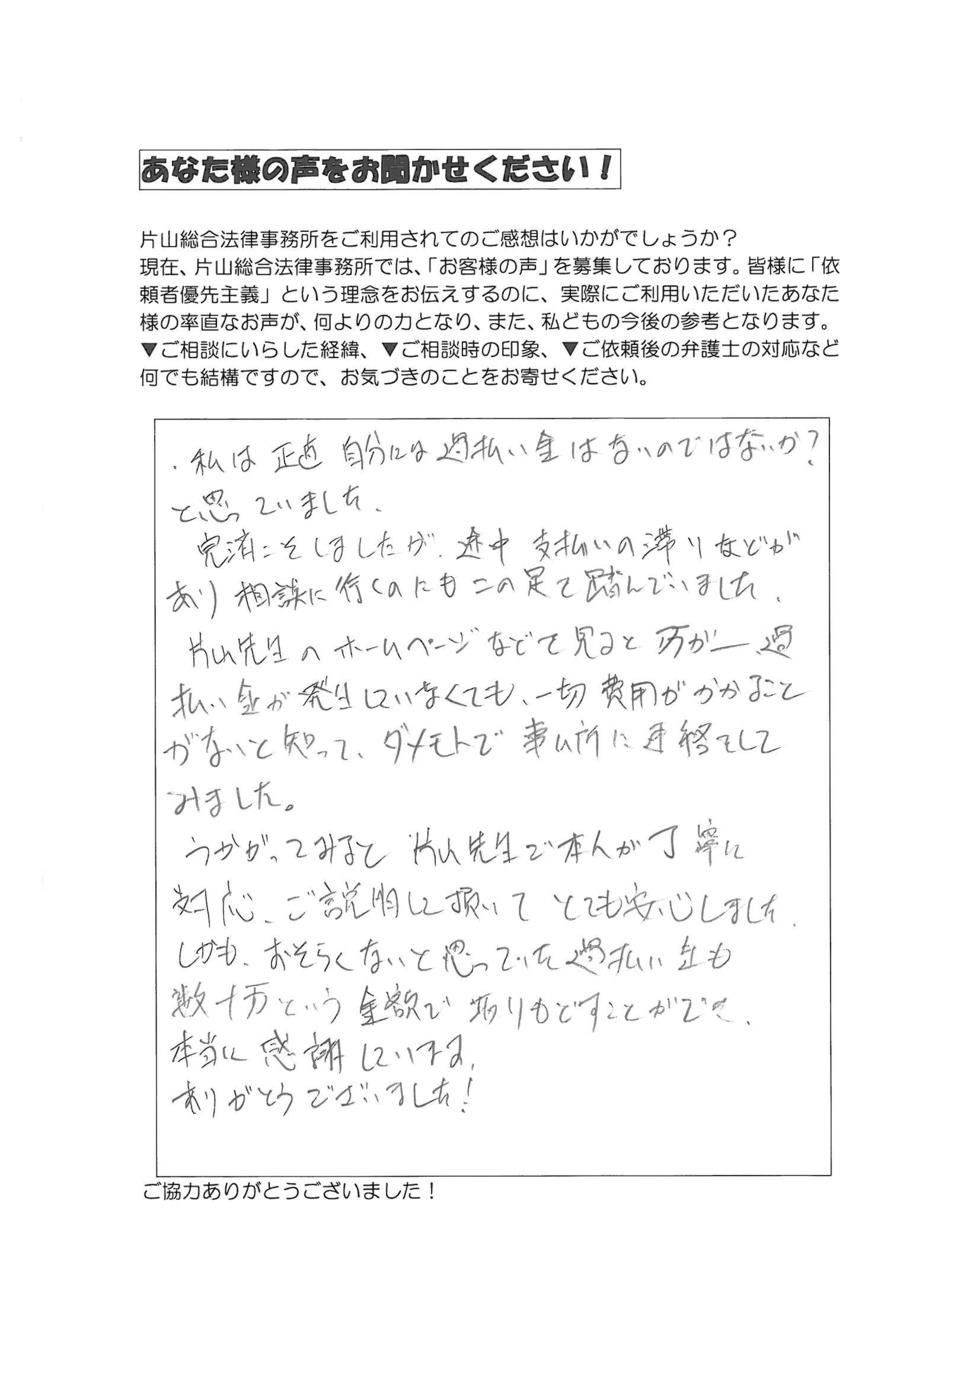 あなた様の声をお聞かせください！
片山総合法律事務所をご利用されてのご感想はいかがでしょうか？
現在、片山総合法律事務所では、「お客様の声」を募集しております。皆様に「依
頼者優先主義」という理念をお伝えするのに、実際にご利用いただいたあなた
様の率直なお声が、何よりの力となり、また、私どもの今後の参考となります。
▼ご相談にいらした経緯、▼ご相談時の印象、▼ご依頼後の弁護士の対応など
何でも結構ですので、お気づきのことをお寄せください。
・私は 正直 自分には過払い金はないのではないか？
と思っていました、
完済こそしましたが、途中 支払いの滞りなどが
あり 相談に行くのにも二の足を踏んでいました、
片山先生のホームページなどを見ると 万が一 過
払い金が発生していなくても、一切費用がかかること
がないと知って、ダメモトで 事ム所に連絡をして
みました。
うかがってみると 片山先生ご本人が丁寧に
対応、ご説明して頂いて とても安心しました、
しかも、おそらくないと思っていた過払い金も
数十万という金額で 取りもどすことができ、
本当に感謝しています、
ありがとうございました！
ご協力ありがとうございました！